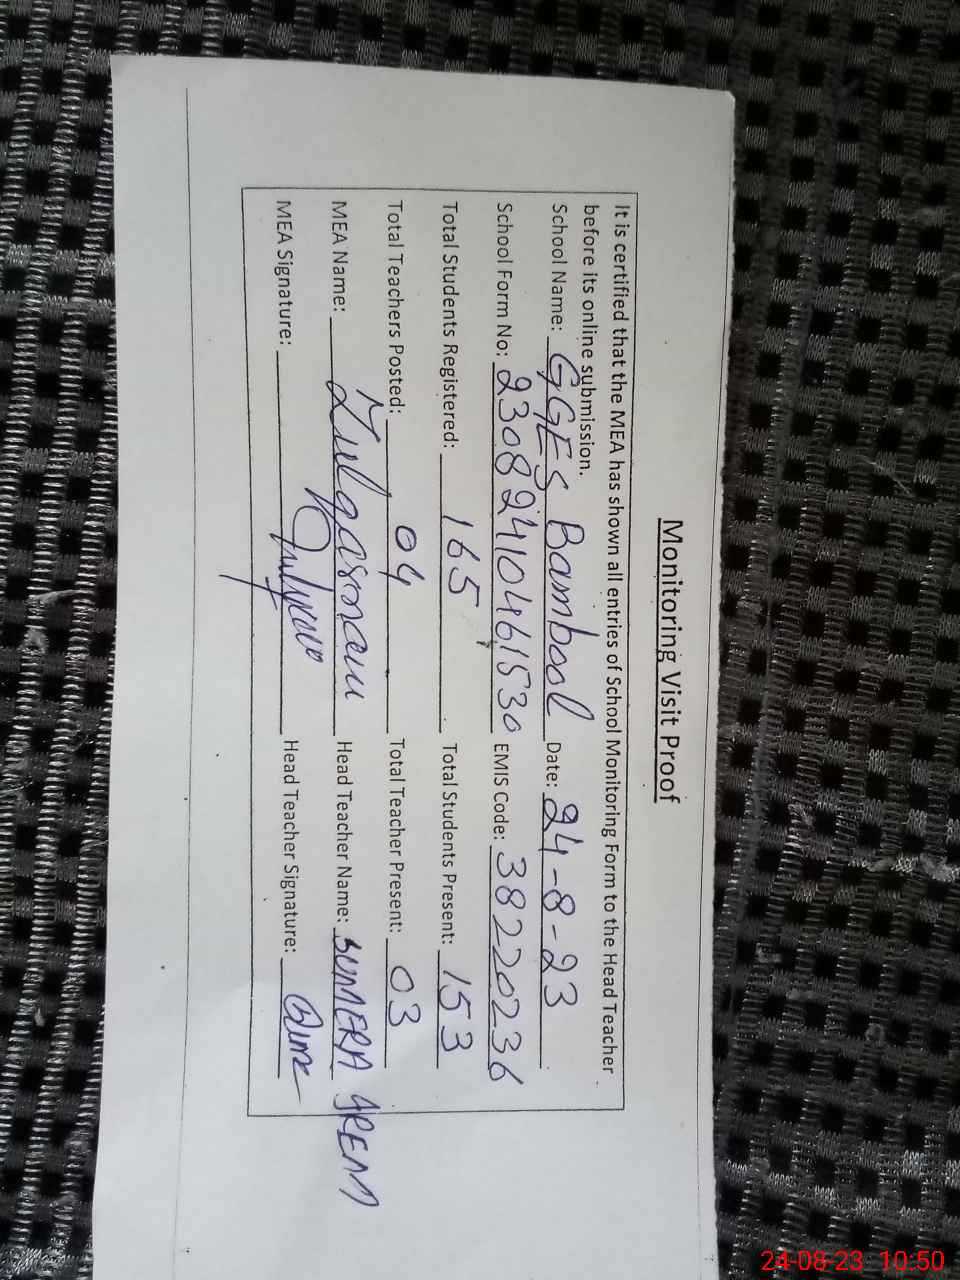 Monitoring Visit Proof
It is certified that the MEA has shown all entries of School Monitoring Form to the Head Teacher
before its online submission.
School Name: GGES Bambool Date: 24-8-23
School Form No: 23082410461530 EMIS Code: 38220236
Total Students Registered: 165 Total Students Present: 153
Total Teachers Posted: 04 Total Teacher Present: 03
MEA Name: Zulqarnain Head Teacher Name: SUMERA
MEA Signature: Head Teacher Signature:
24-08-23 10:50